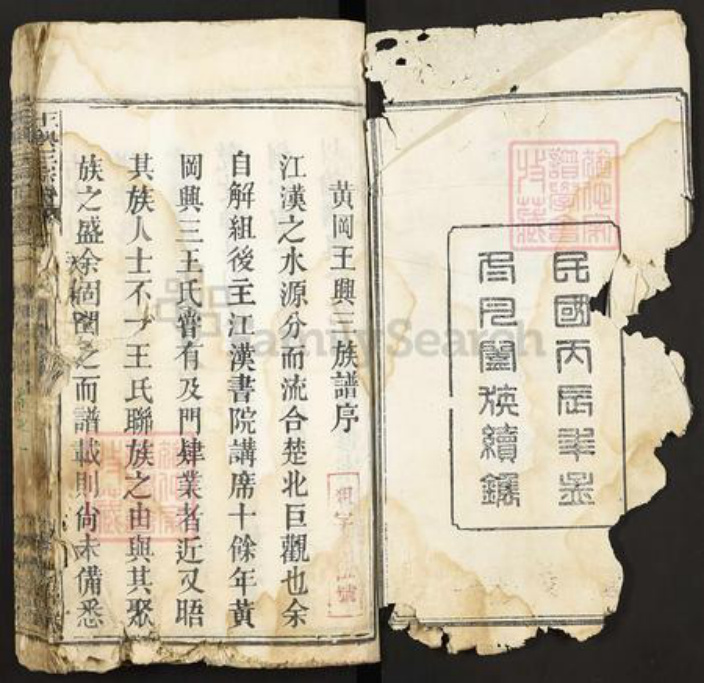 民國丙辰年孟
月闔族續鐫
黃岡王興三族譜序
江漢之水源分而流合楚北巨觀也余
自解組後主江漢書院講席十餘年黃
岡興三王氏嘗有及門肄業者近又晤
其族人士不一王氏聯族之由與其聚
族之盛余固聞之而譜載則尚未備悉
FamilySearch